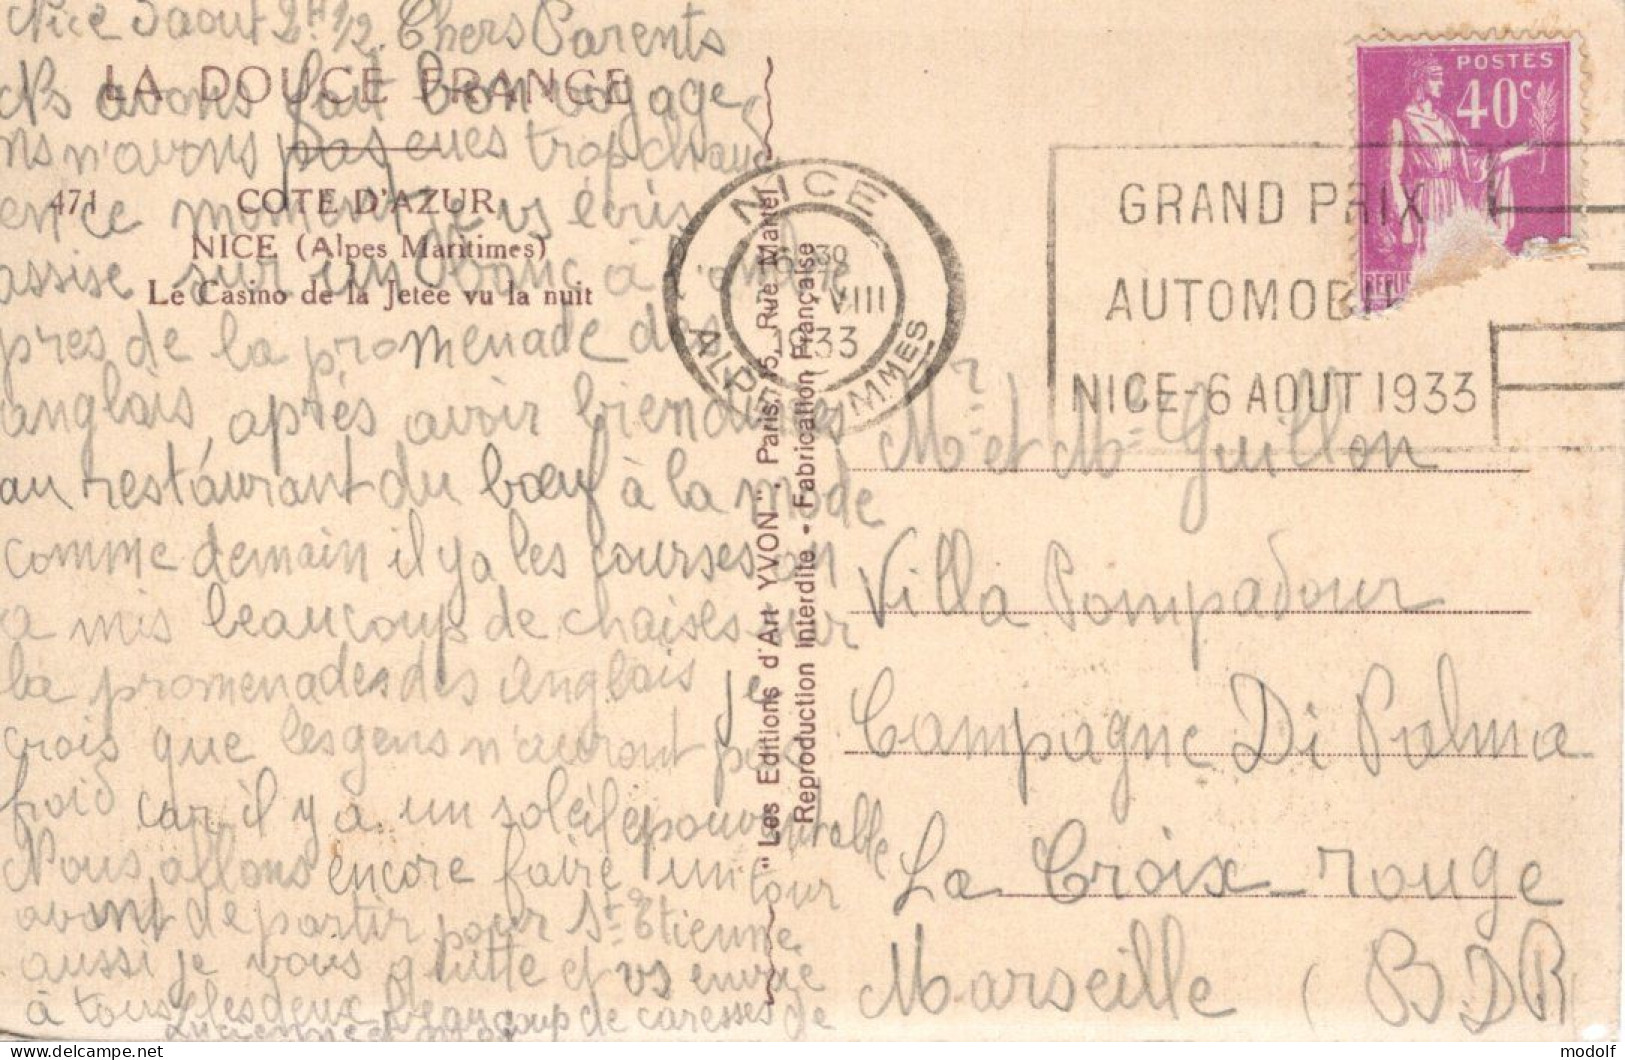 Nice 5 aout 2H 1/2. Chers Parents
LA DOUCE FRANCE
Ns avons fait bon voyage,
ns n'avons pas eues trop chaud
471
COTE D'AZUR
en ce moment je vs écris
NICE (Alpes Maritimes)
assise sur un banc à l'ombre
Le Casino de la Jetée vu la nuit
près de la promenade des
anglais, après avoir bien
au restaurant du bœuf à la mode
comme demain il y a les courses on
a mis beaucoup de chaises sur
la promenades des anglais je
crois que les gens n'auront pas
froid car il y a un soleil epouvantable
Nous allons encore faire un tour
avant de partir pour St Etienne
aussi je vous quitte et vs envoie
à tous les deux beaucoup de caresses de
Lucienne et
"Les Editions d'Art YVON", Paris, 15, Rue Martel
Reproduction Interdite - Fabrication Française
NICE
VIII
1933
ALPES MMES
POSTES
40c
GRAND PRIX
AUTOMOBI
NICE-6 AOUT 1933
Mr et Me Guillon
Villa Pompadour
Campagne Di Palma
La Croix-rouge
Marseille (BDR
modolf